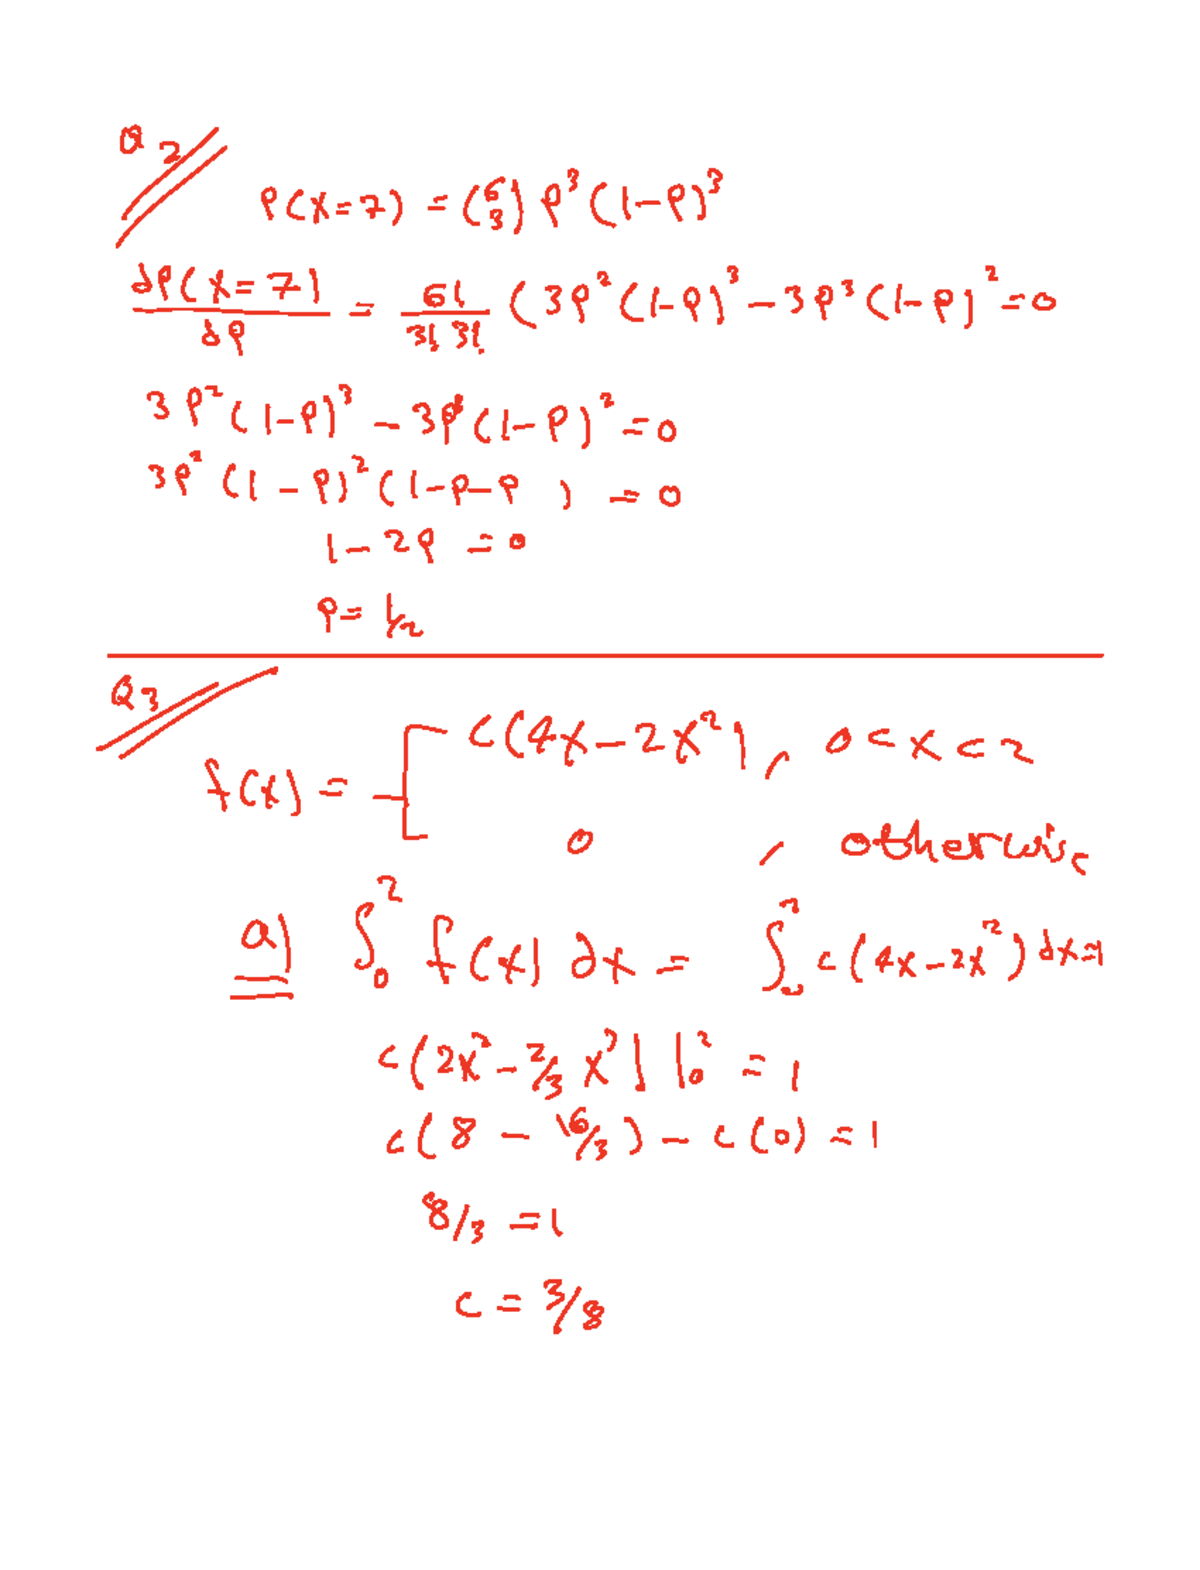 Q2
P(X=7) = (6 3) p³(1-p)³
dP(X=7)/dp = 6!/3!3! (3p²(1-p)³-3p³(1-p)²=0
3p²(1-p)³-3p³(1-p)²=0
3p²(1-p)²(1-p-p ) =0
1-2p =0
p=1/2
Q3
f(x)= { c(4x-2x²), 0<x<2
0 , otherwise
a) ∫₀² f(x) dx = ∫₀² c(4x-2x²) dx=1
c(2x²-2/3 x³)|₀² = 1
c(8 - 16/3) - c(0) =1
8/3 =1
c = 3/8